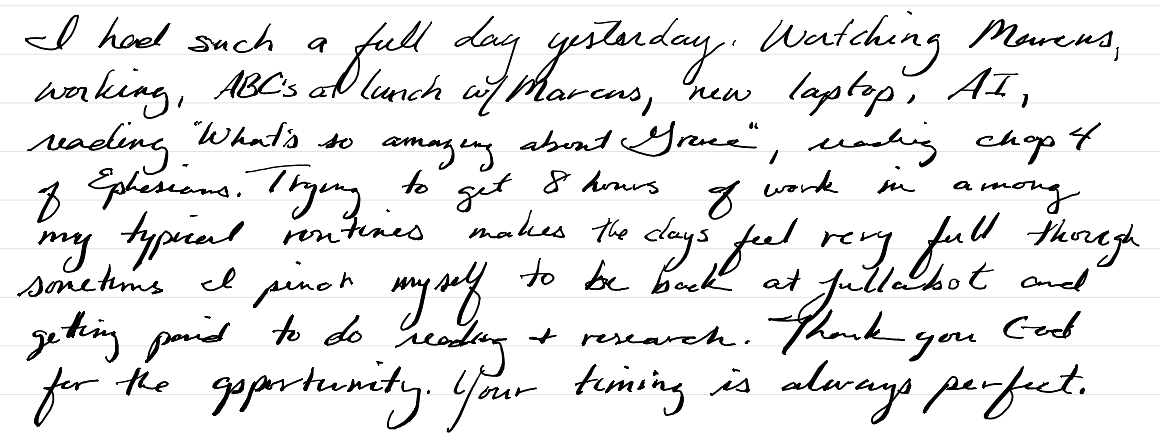 I had such a full day yesterday. Watching Marcus,
working, ABC's at lunch w/ Marcus, new laptop, AI,
reading "What's so amazing about Grace", reading chap 4
of Ephesians. Trying to get 8 hours of work in among
my typical routines makes the days feel very full though
sometims I pinch myself to be back at Lullabot and
getting paid to do reading + research. Thank you God
for the opportunity. Your timing is always perfect.